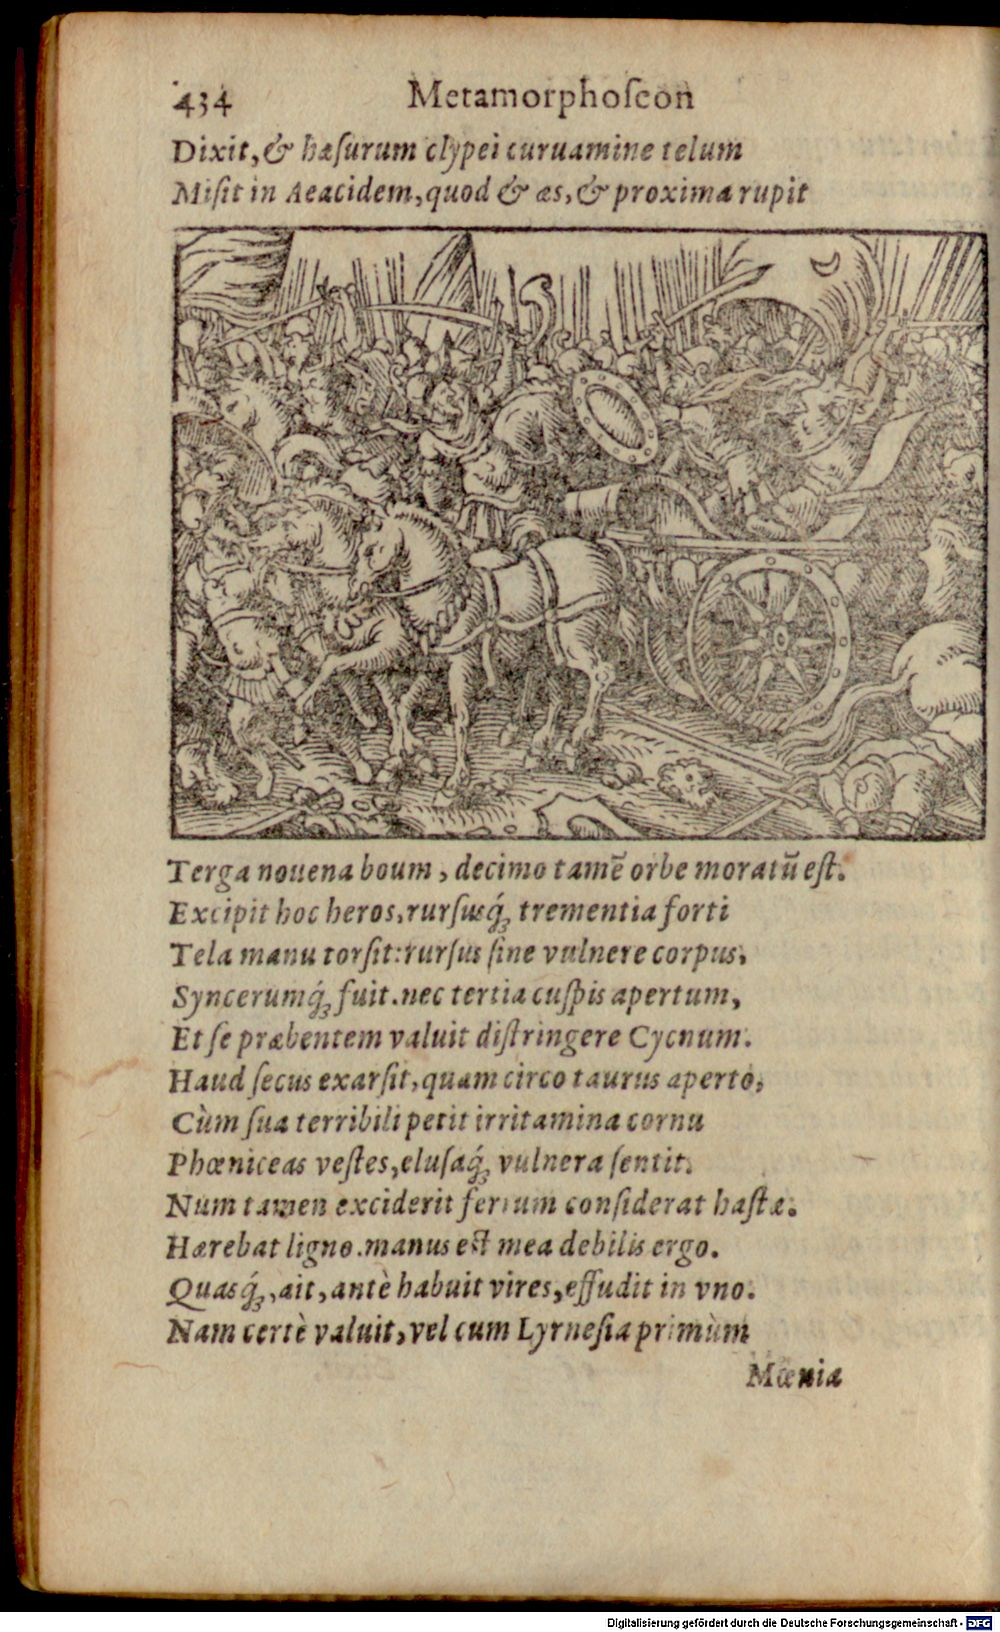 434 Metamorphoſeon
Dixit, & hæſurum clypei curuamine telum
Miſit in Aeacidem, quod & æs, & proxima rupit
Terga nouena boum, decimo tamē orbe moratū eſt.
Excipit hoc heros, rurſusq́; trementia forti
Tela manu torſit: rurſus ſine vulnere corpus,
Syncerumq́; fuit. nec tertia cuſpis apertum,
Et ſe præbentem valuit diſtringere Cycnum.
Haud ſecus exarſit, quam circo taurus aperto,
Cùm ſua terribili petit irritamina cornu
Phœniceas veſtes, eluſaq́; vulnera ſentit.
Num tamen exciderit ferrum conſiderat haſtæ.
Hærebat ligno. manus eſt mea debilis ergo.
Quasq́;, ait, antè habuit vires, effudit in vno.
Nam certè valuit, vel cum Lyrneſia primùm
Mœnia
Digitalisierung gefördert durch die Deutsche Forschungsgemeinschaft - DFG